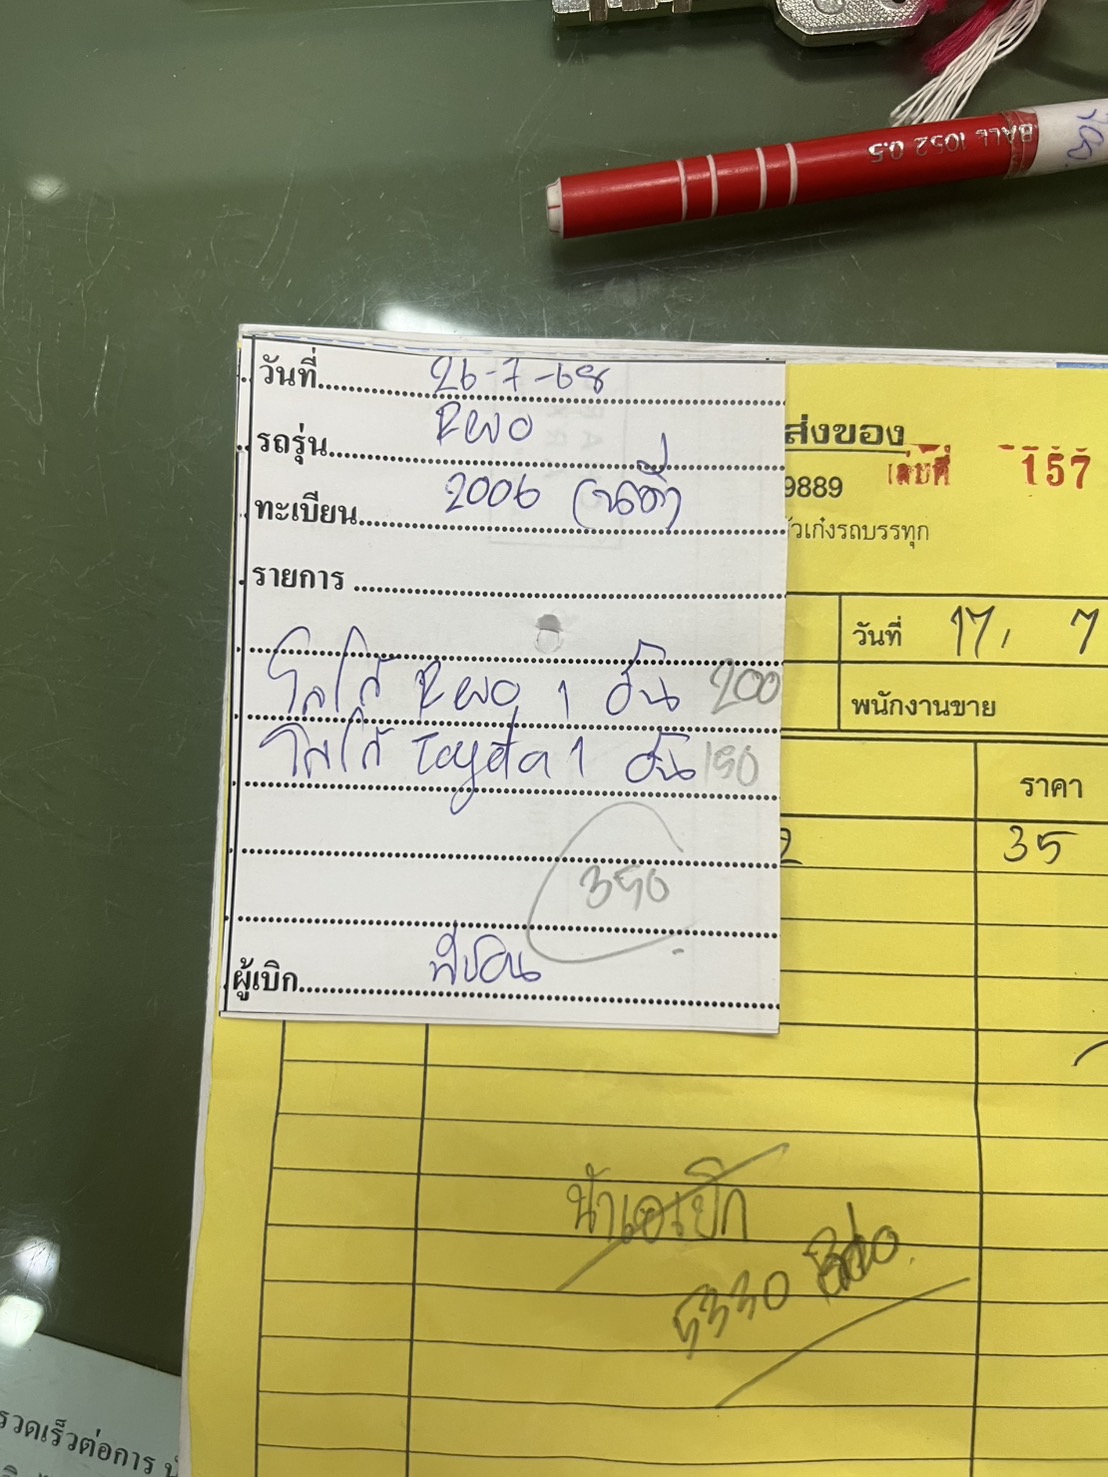 BALL 1052 0.5
วันที่ 26-7-68
รถรุ่น Revo
ทะเบียน 2006
รายการ
โลโก้ Revo 1 อัน 200
โลโก้ Toyota 1 อัน 150
350
ผู้เบิก
ส่งของ
9889 เลขที่ 157
วเก๋งรถบรรทุก
วันที่ 17, 7
พนักงานขาย
ราคา
2 35
น้าเอเบิก
5330
รวดเร็วต่อการ